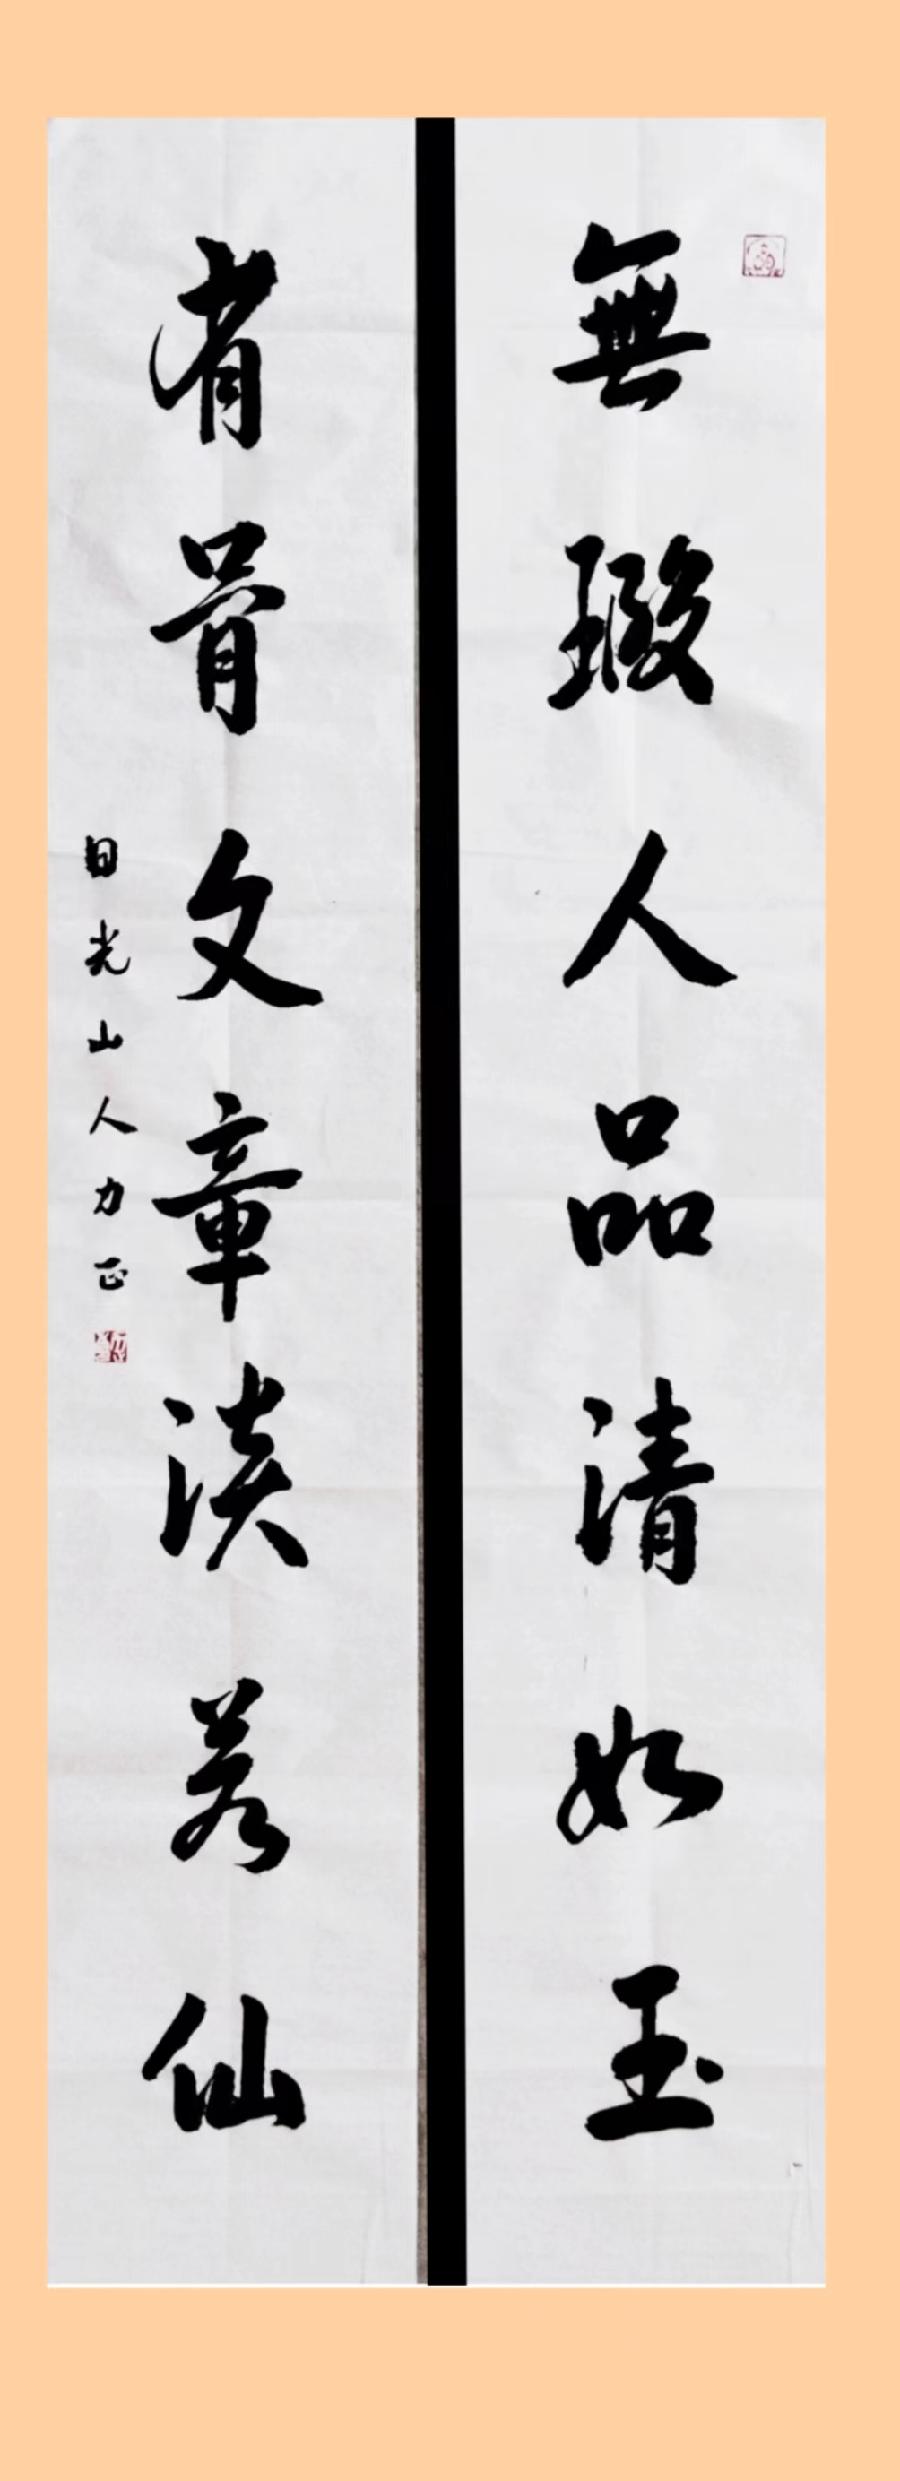 無瑕人品清如玉
有骨文章淡若仙
日光山人力正